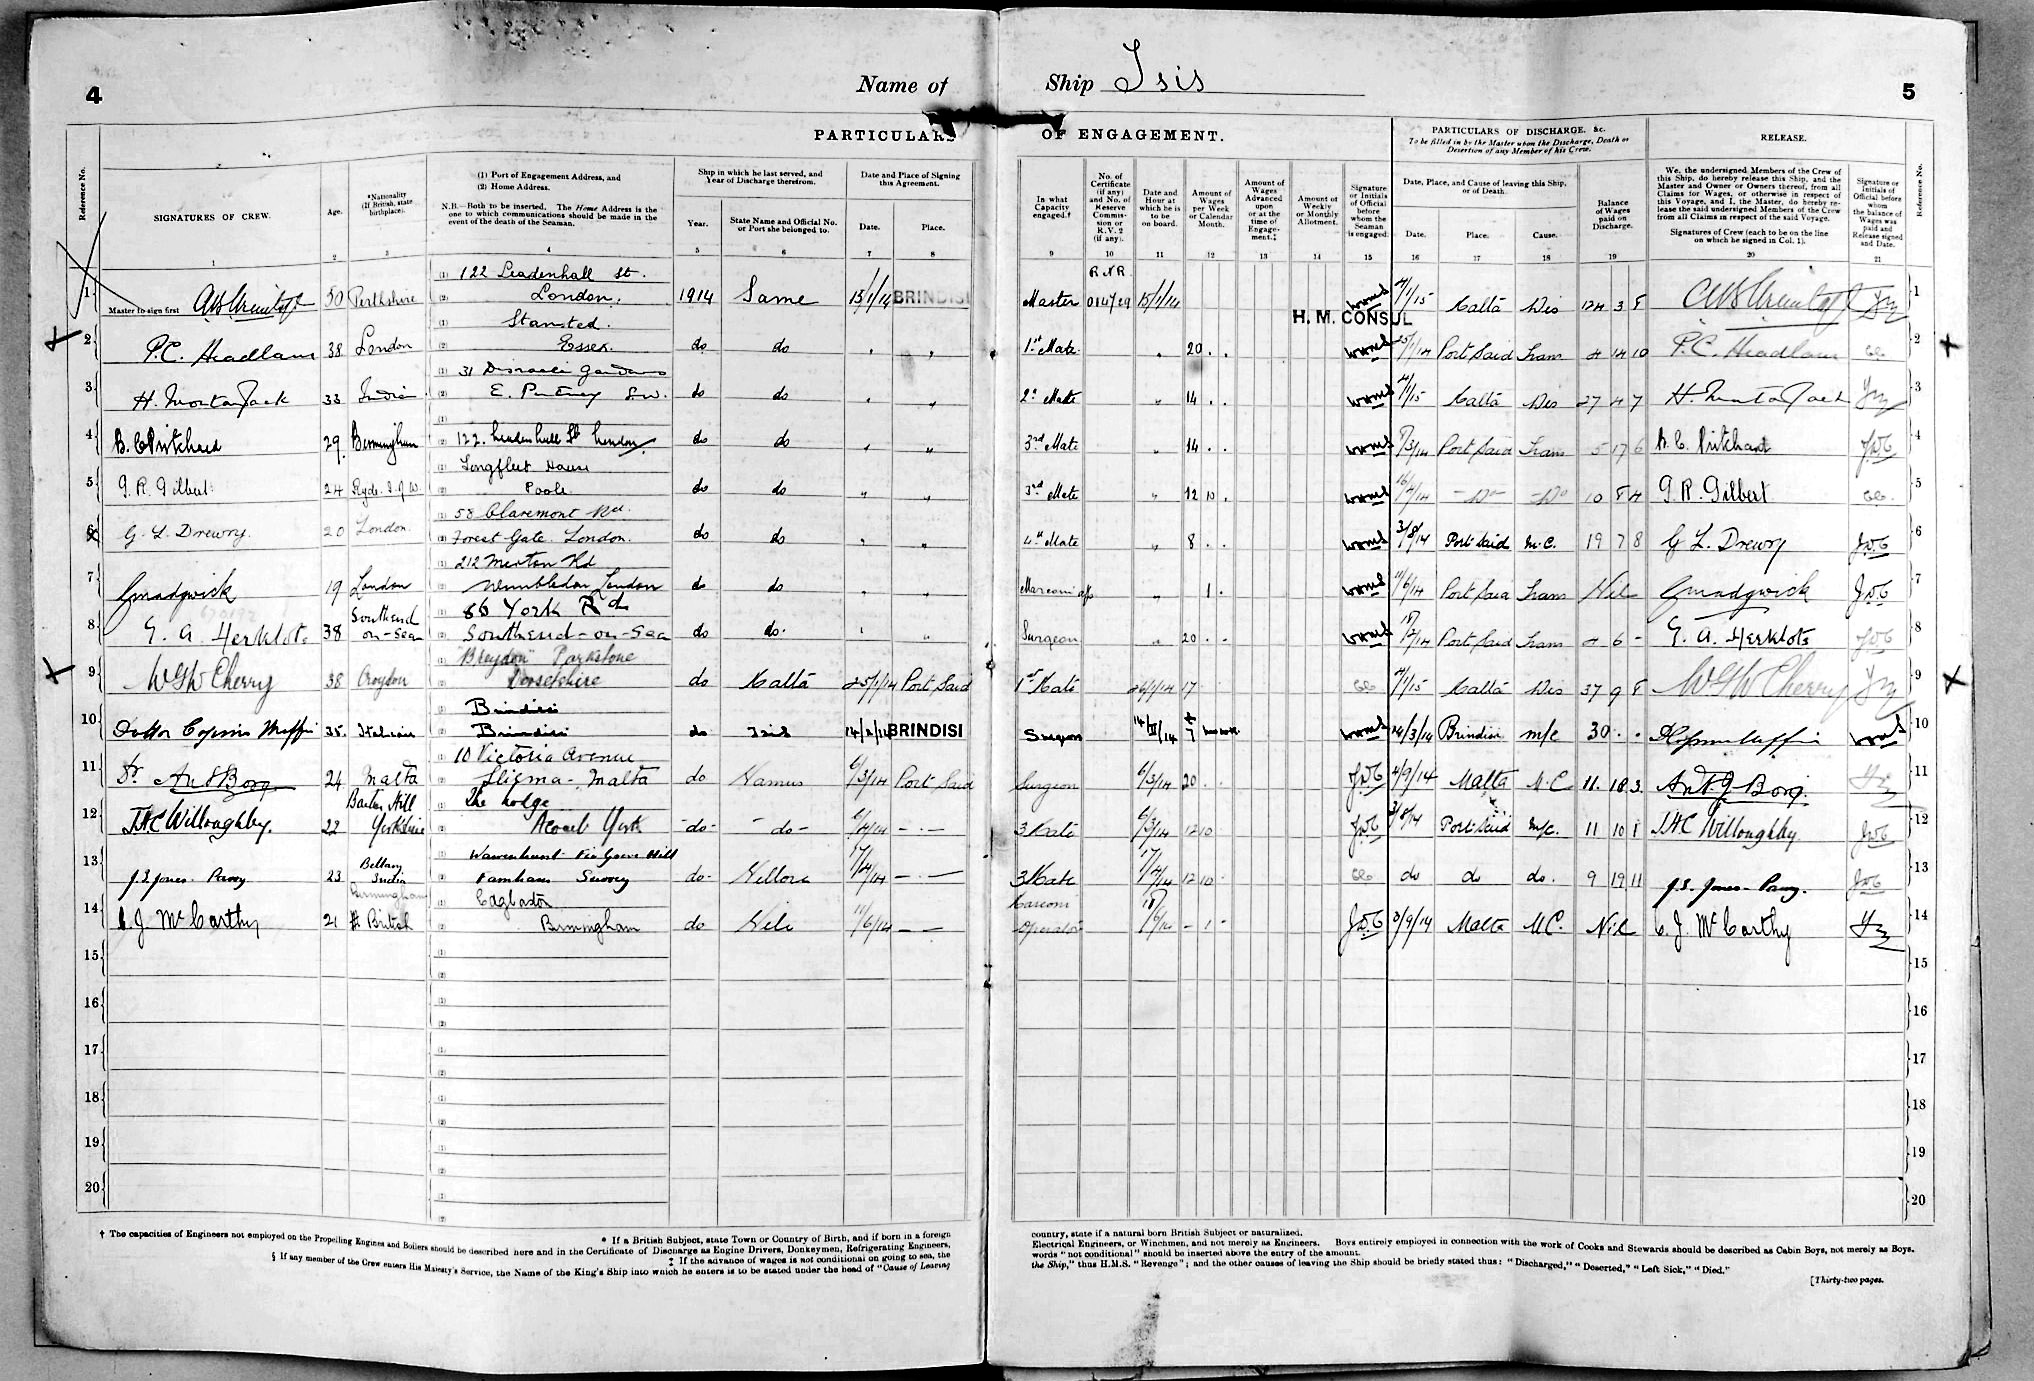 4
Name of Ship Isis
5
PARTICULARS OF ENGAGEMENT.
PARTICULARS OF DISCHARGE, &c.
To be filled in by the Master upon the Discharge, Death or
Desertion of any Member of his Crew.
RELEASE.
Reference No.
SIGNATURES OF CREW.
Age.
*Nationality
(If British, state
birthplace).
(1) Port of Engagement Address, and
(2) Home Address.
N.B.—Both to be inserted. The Home Address is the
one to which communications should be made in the
event of the death of the Seaman.
Ship in which he last served, and
Year of Discharge therefrom.
Year.
State Name and Official No.
or Port she belonged to.
Date and Place of Signing
this Agreement.
Date.
Place.
In what
Capacity
engaged.†
No. of
Certificate
(if any)
and No. of
Reserve
Commis-
sion or
R.V. 2
(if any).
Date and
Hour at
which he is
to be
on board.
Amount of
Wages
per Week
or Calendar
Month.
Amount of
Wages
Advanced
upon
or at the
time of
Engage-
ment.‡
Amount of
Weekly
or Monthly
Allotment.
Signature
or Initials
of Official
before
whom the
Seaman
is engaged.
Date, Place, and Cause of leaving this Ship,
or of Death.
Date.
Place.
Cause.
Balance
of Wages
paid on
Discharge.
We, the undersigned Members of the Crew of
this Ship, do hereby release this Ship, and the
Master and Owner or Owners thereof, from all
Claims for Wages, or otherwise in respect of
this Voyage, and I, the Master, do hereby re-
lease the said undersigned Members of the Crew
from all Claims in respect of the said Voyage.
Signatures of Crew (each to be on the line
on which he signed in Col. 1).
Signature or
Initials of
Official before
whom
the balance of
Wages was
paid and
Release signed
and Date.
Reference No.
1 2 3 4 5 6 7 8 9 10 11 12 13 14 15 16 17 18 19 20 21
1 Master to sign first 50 Perthshire (1) 122 Leadenhall St. (2) London. 1914 Same 15/1/14 BRINDISI Master R N R 15/1/14 H. M. CONSUL Malta Dis 124 3 8 1
2 P.C. Headlam 38 London (1) Stansted. (2) Essex. do do " " 1st Mate " 20 . . Port Said Trans 4 14 10 P.C. Headlam 2
3 33 India (1) 31 Disraeli Gardens (2) E. Putney S.W. do do " " 2d Mate " 14 . . Malta Dis 27 4 7 3
4 B. C. Pritchard 29 Birmingham (2) 122. Leadenhall St London do do " " 3rd Mate " 14 . . Port Said Trans 5 17 6 B. C. Pritchard 4
5 G. R. Gilbert 24 Ryde. I.o.W. (1) Longfleet House (2) Poole do do " " 3rd Mate " 12 10 . Do Do 10 8 4 G. R. Gilbert 5
6 G. L. Drewry. 20 London. (1) 58 Claremont Rd. (2) Forest Gate. London. do do " " 4th Mate " 8 . . 3/8/14 Port Said M.C. 19 7 8 G L. Drewry 6
7 Gmadgwick 19 London (1) 212 Merton Rd (2) Wimbledon London do do " " Marconi op " 1 . 11/6/14 Port Said Trans Nil Gmadgwick 7
8 G. A. Herklots 38 Southend on-Sea (1) York Rd (2) Southend-on-Sea do do. " " Surgeon " 20 . . Port Said Trans 6 - G. A. Herklots 8
9 W G W Cherry 38 Croydon (1) "Breydon" Parkstone (2) Dorsetshire do Malta 25/1/14 Port Said 1st Mate 26/1/14 17 Malta Dis 37 9 8 W G W Cherry 9
10 35. Italian (1) Brindisi (2) Brindisi do BRINDISI Surgeon 24/3/14 Brindisi m/c 30 . . 10
11 Dr. Ant J Borg 24 Malta (1) 10 Victoria Avenue (2) Sliema - Malta do 6/3/14 Port Said Surgeon 6/3/14 20 4/9/14 Malta M.C 11. 18 3. Ant J Borg. 11
12 J H C Willoughby. 22 Yorkshire (1) The Lodge (2) Acomb York -do- -do- 3 Mate 12 10 3/8/14 Port Said M/C. 11 10 1 J H C Willoughby 12
13 J. S. Jones-Parry 23 Bellary India (2) Farnham Surrey do- Nellore 17/4/14 3 Mate 17/4/14 12 10 do do do. 9 19 11 J. S. Jones-Parry. 13
14 C. J. McCarthy 21 British Birmingham (1) Edgbaston (2) Birmingham do Nile 11/6/14 Marconi Operator - 1 - 3/9/14 Malta M C. Nil C. J. McCarthy 14
15 15
16 16
17 17
18 18
19 19
20 20
† The capacities of Engineers not employed on the Propelling Engines and Boilers should be described here and in the Certificate of Discharge as Engine Drivers, Donkeymen, Refrigerating Engineers,
* If a British Subject, state Town or Country of Birth, and if born in a foreign
‡ If the advance of wages is not conditional on going to sea, the
§ If any member of the Crew enters His Majesty's Service, the Name of the King's Ship into which he enters is to be stated under the head of "Cause of Leaving
country, state if a natural born British Subject or naturalized.
Electrical Engineers, or Winchmen, and not merely as Engineers. Boys entirely employed in connection with the work of Cooks and Stewards should be described as Cabin Boys, not merely as Boys.
words "not conditional" should be inserted above the entry of the amount.
the Ship," thus H.M.S. "Revenge"; and the other causes of leaving the Ship should be briefly stated thus: "Discharged," "Deserted," "Left Sick," "Died."
[Thirty-two pages.